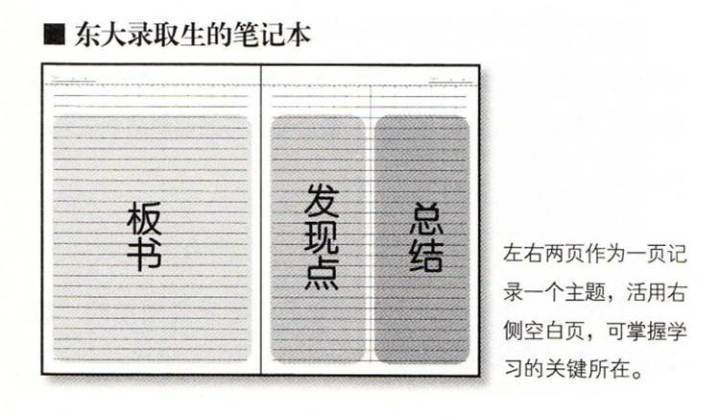 ■ 东大录取生的笔记本
板书
发现点
总结
左右两页作为一页记
录一个主题，活用右
侧空白页，可掌握学
习的关键所在。